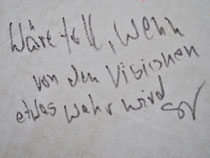 Wäre toll, wenn
von den Visionen
etwas wahr wird
SV